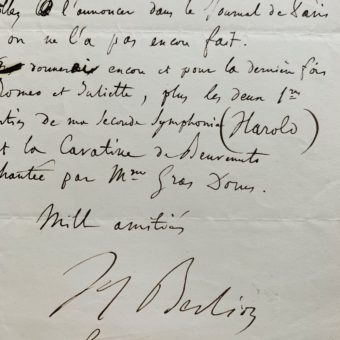 l'annoncer dans le Journal de Paris
on ne l'a pas encore fait.
donnerai encore et pour la dernière fois
Romeo et Juliette, plus les deux 1res
parties de ma seconde Symphonie (Harold)
et la Cavatine de Benvenuto
chantée par Mme Gras Dorus.
Mille amitiés
H Berlioz